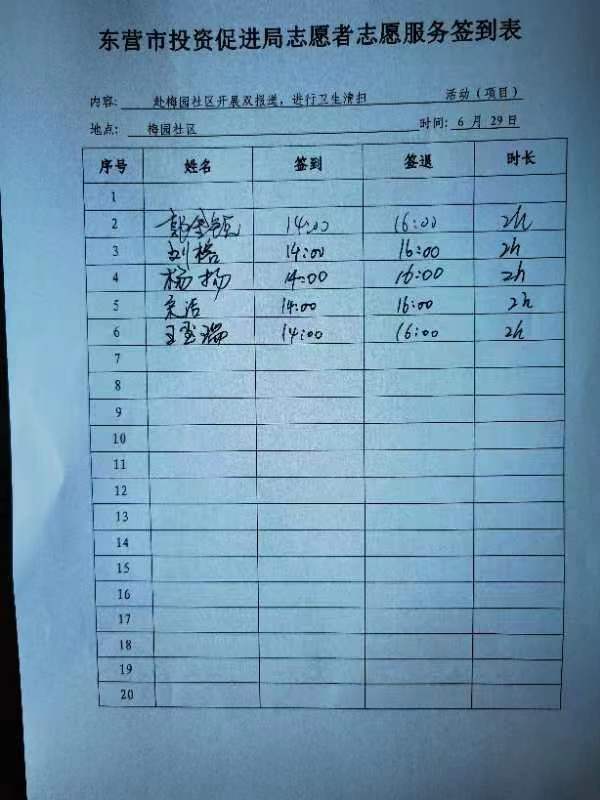 东营市投资促进局志愿者志愿服务签到表
内容: 赴梅园社区开展双报道，进行卫生清扫 活动（项目）
地点: 梅园社区 时间: 6 月 29日
序号 姓名 签到 签退 时长
1
2 14:00 16:00 2h
3 刘格 14:00 16:00 2h
4 杨扬 14:00 16:00 2h
5 宋洁 14:00 16:00 2h
6 王玺瑞 14:00 16:00 2h
7
8
9
10
11
12
13
14
15
16
17
18
19
20